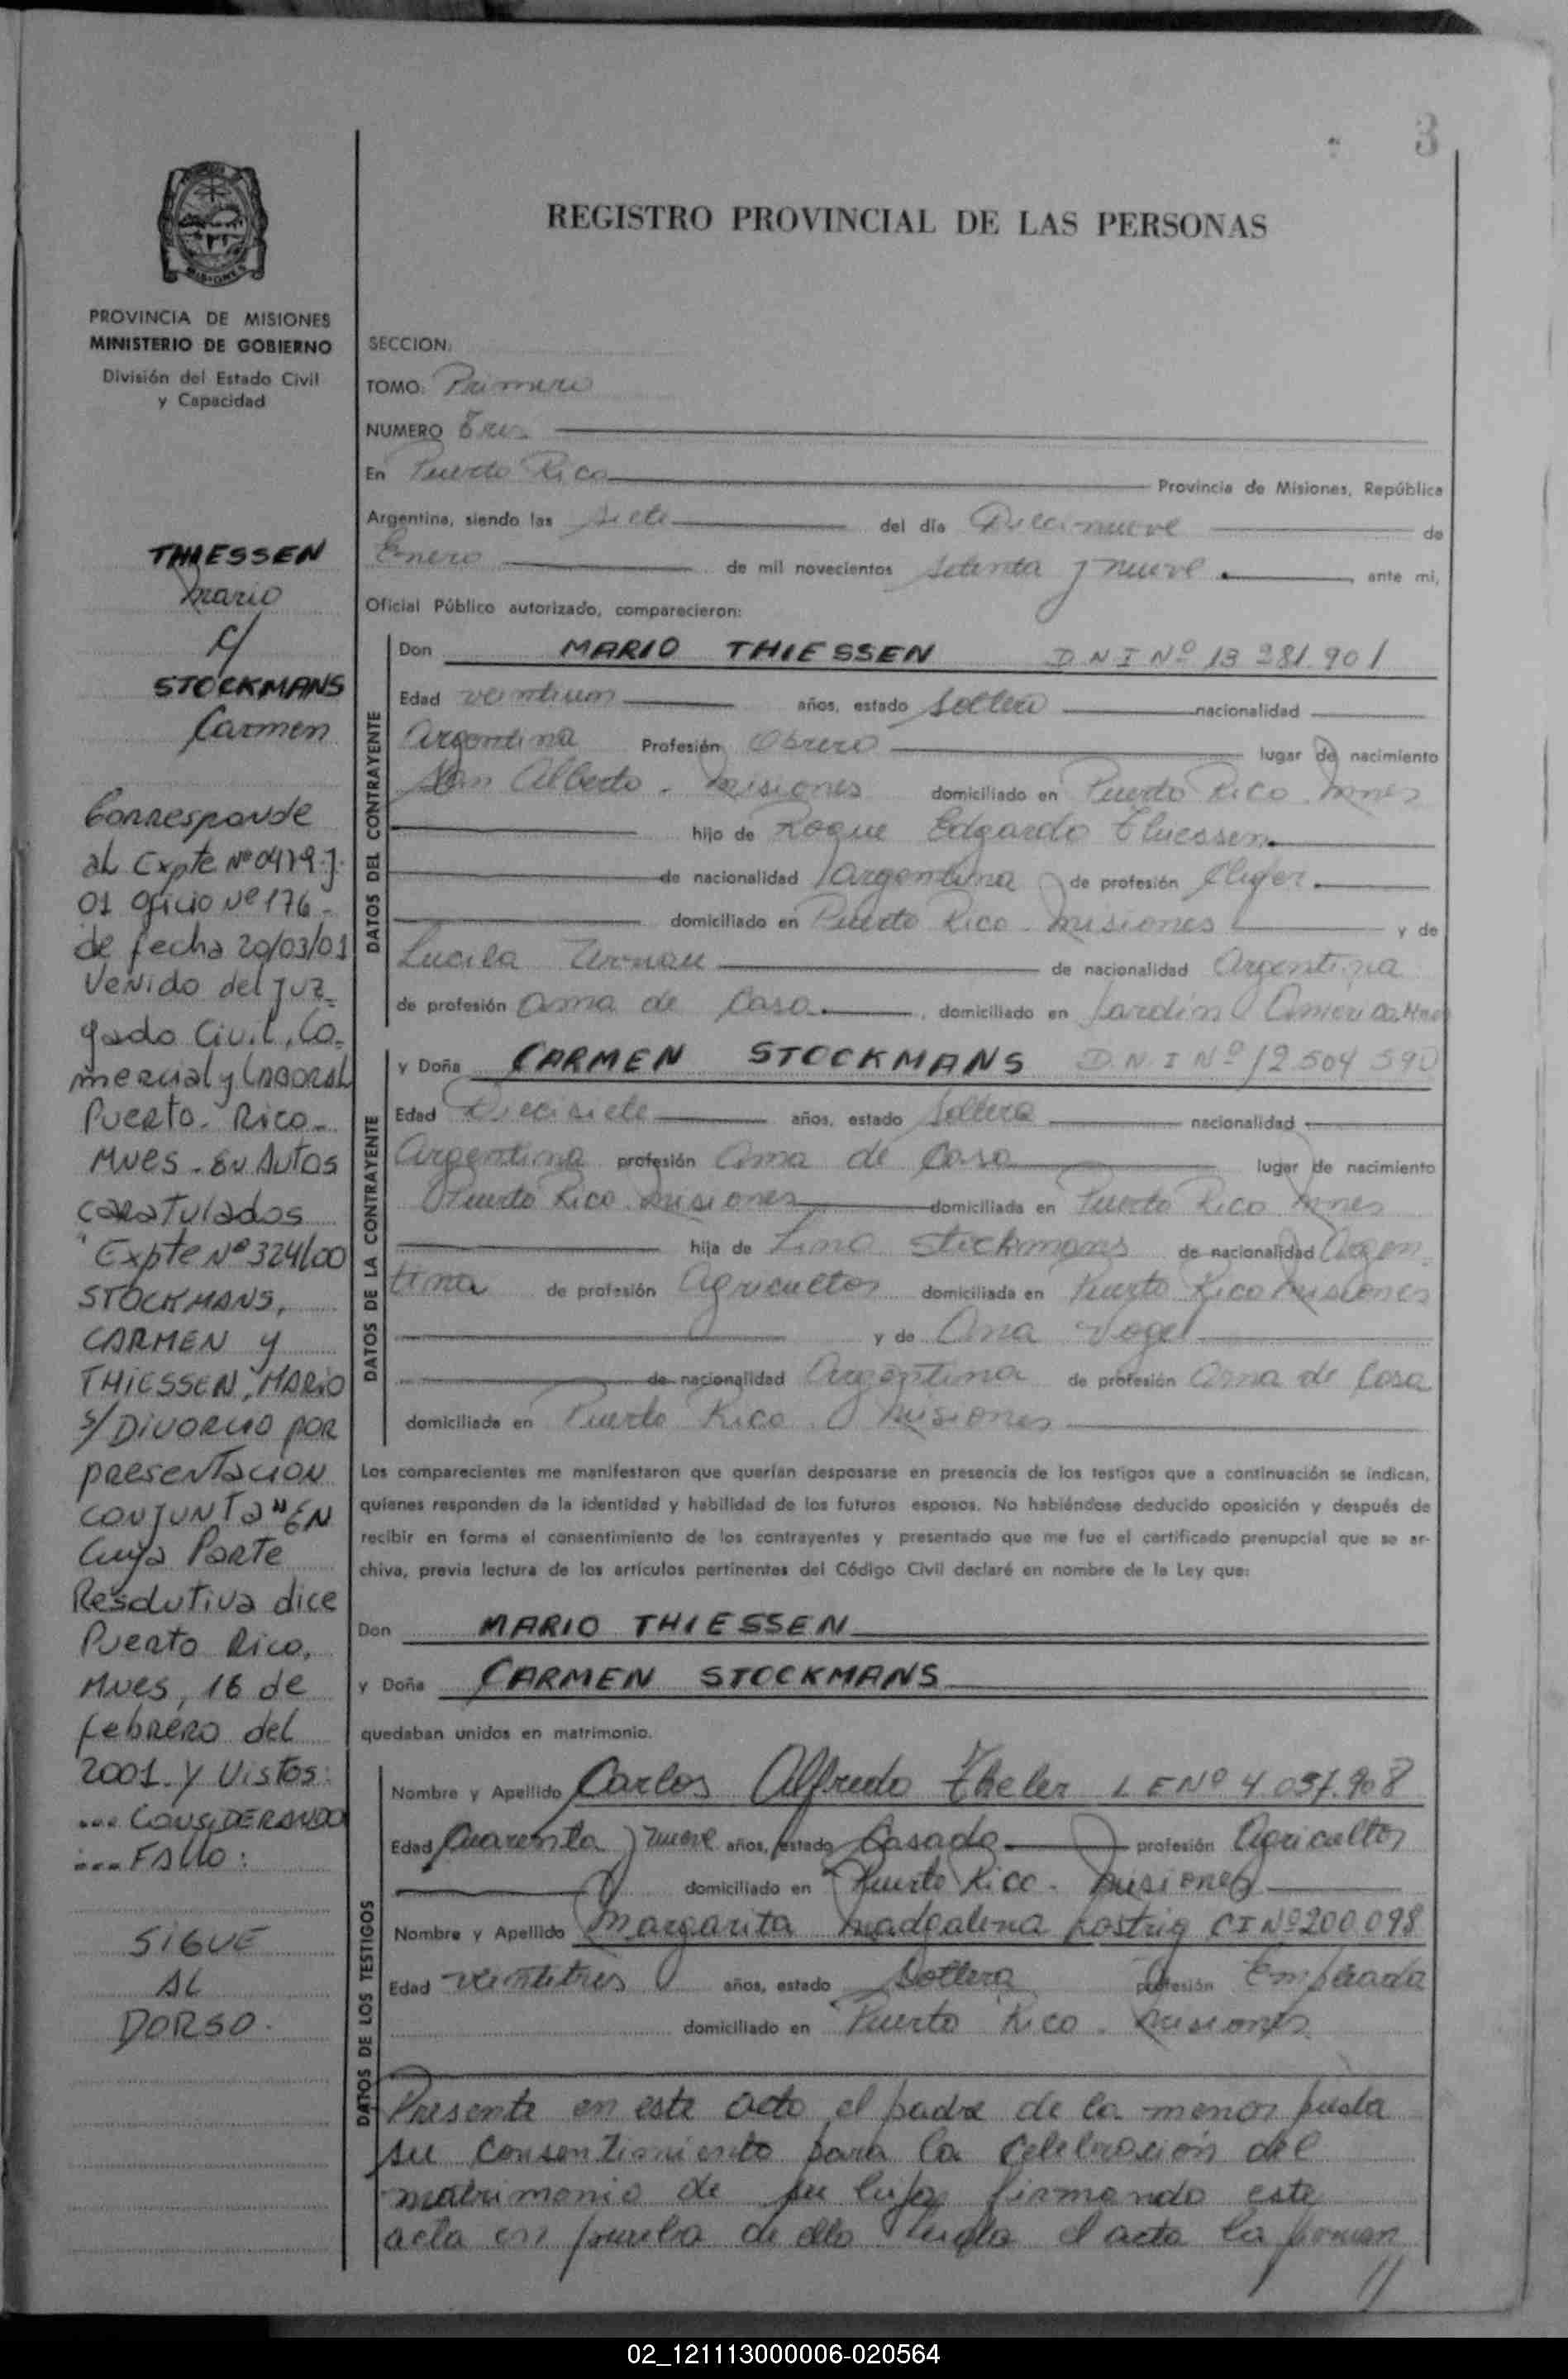 3
REGISTRO PROVINCIAL DE LAS PERSONAS
MISIONES
PROVINCIA DE MISIONES
MINISTERIO DE GOBIERNO
División del Estado Civil
y Capacidad
THIESSEN
Mario
c/
STOCKMANS
Carmen
Corresponde
al Expte Nº 0479-J-
01 oficio Nº 176-
de fecha 20/03/01
Venido del Juz-
gado Civil, Co-
mercial y Laboral
Puerto-Rico-
Mnes-En Autos
caratulados
"Expte Nº 324/00
STOCKMANS,
CARMEN y
THIESSEN, MARIO
s/ DIVORCIO POR
presentación
conjunta" EN
Cuya Parte
Resolutiva dice
Puerto Rico,
Mnes, 16 de
febrero del
2001. y Vistos:
... CONSIDERANDO
... FAllo:
SIGUE
AL
DORSO.
SECCION:
TOMO: Primero
NUMERO Tres
En Puerto Rico Provincia de Misiones, República
Argentina, siendo las siete del día Diecinueve de
Enero de mil novecientos setenta y nueve. ante mi,
Oficial Público autorizado, comparecieron:
DATOS DEL CONTRAYENTE
Don MARIO THIESSEN DNI Nº 13 281.901
Edad veintiun años, estado soltero nacionalidad
Argentina Profesión Obrero lugar de nacimiento
San Alberto - Misiones domiciliado en Puerto Rico Mnes
hijo de Roque Edgardo Thiessen
de nacionalidad Argentina de profesión Chofer.
domiciliado en Puerto Rico - Misiones y de
Lucila de nacionalidad Argentina
de profesión Ama de Casa , domiciliado en Jardín America. Mnes
DATOS DE LA CONTRAYENTE
y Doña CARMEN STOCKMANS D.N.I Nº 12.504 590
Edad Diecisiete años, estado Soltera nacionalidad
Argentina profesión Ama de Casa lugar de nacimiento
Puerto Rico Misiones domiciliada en Puerto Rico Mnes
hija de Lino Stockmans de nacionalidad Argen-
tina de profesión Agricultor domiciliada en Puerto Rico Misiones
y de Ana Vogel
de nacionalidad Argentina de profesión Ama de Casa
domiciliada en Puerto Rico. Misiones
Los comparecientes me manifestaron que querían desposarse en presencia de los testigos que a continuación se indican,
quienes responden de la identidad y habilidad de los futuros esposos. No habiéndose deducido oposición y después de
recibir en forma el consentimiento de los contrayentes y presentado que me fue el certificado prenupcial que se ar-
chiva, previa lectura de los artículos pertinentes del Código Civil declaré en nombre de la Ley que:
Don MARIO THIESSEN
y Doña CARMEN STOCKMANS
quedaban unidos en matrimonio.
DATOS DE LOS TESTIGOS
Nombre y Apellido Carlos Alfredo Theler L E Nº 4.057.908
Edad Cuarenta y nueve años, estado Casado profesión Agricultor
domiciliado en Puerto Rico - Misiones
Nombre y Apellido Margarita Madgalena CI Nº 200.098
Edad veintitres años, estado Soltera profesión Empleada
domiciliado en Puerto Rico - Misiones
Presente en este acto el padre de la menor presta
su consentimiento para la celebracion del
matrimonio de su hija firmando este
acta en prueba de ello Leida el acta la firman
//
02_121113000006-020564